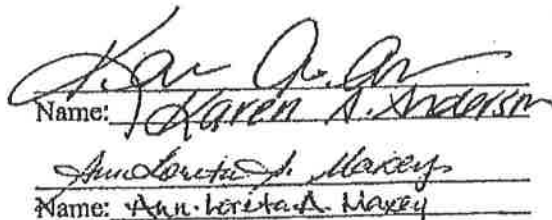 Name: Karen A. Anderson
Ann Loreta A. Maxey
Name: Ann Loreta A. Maxey